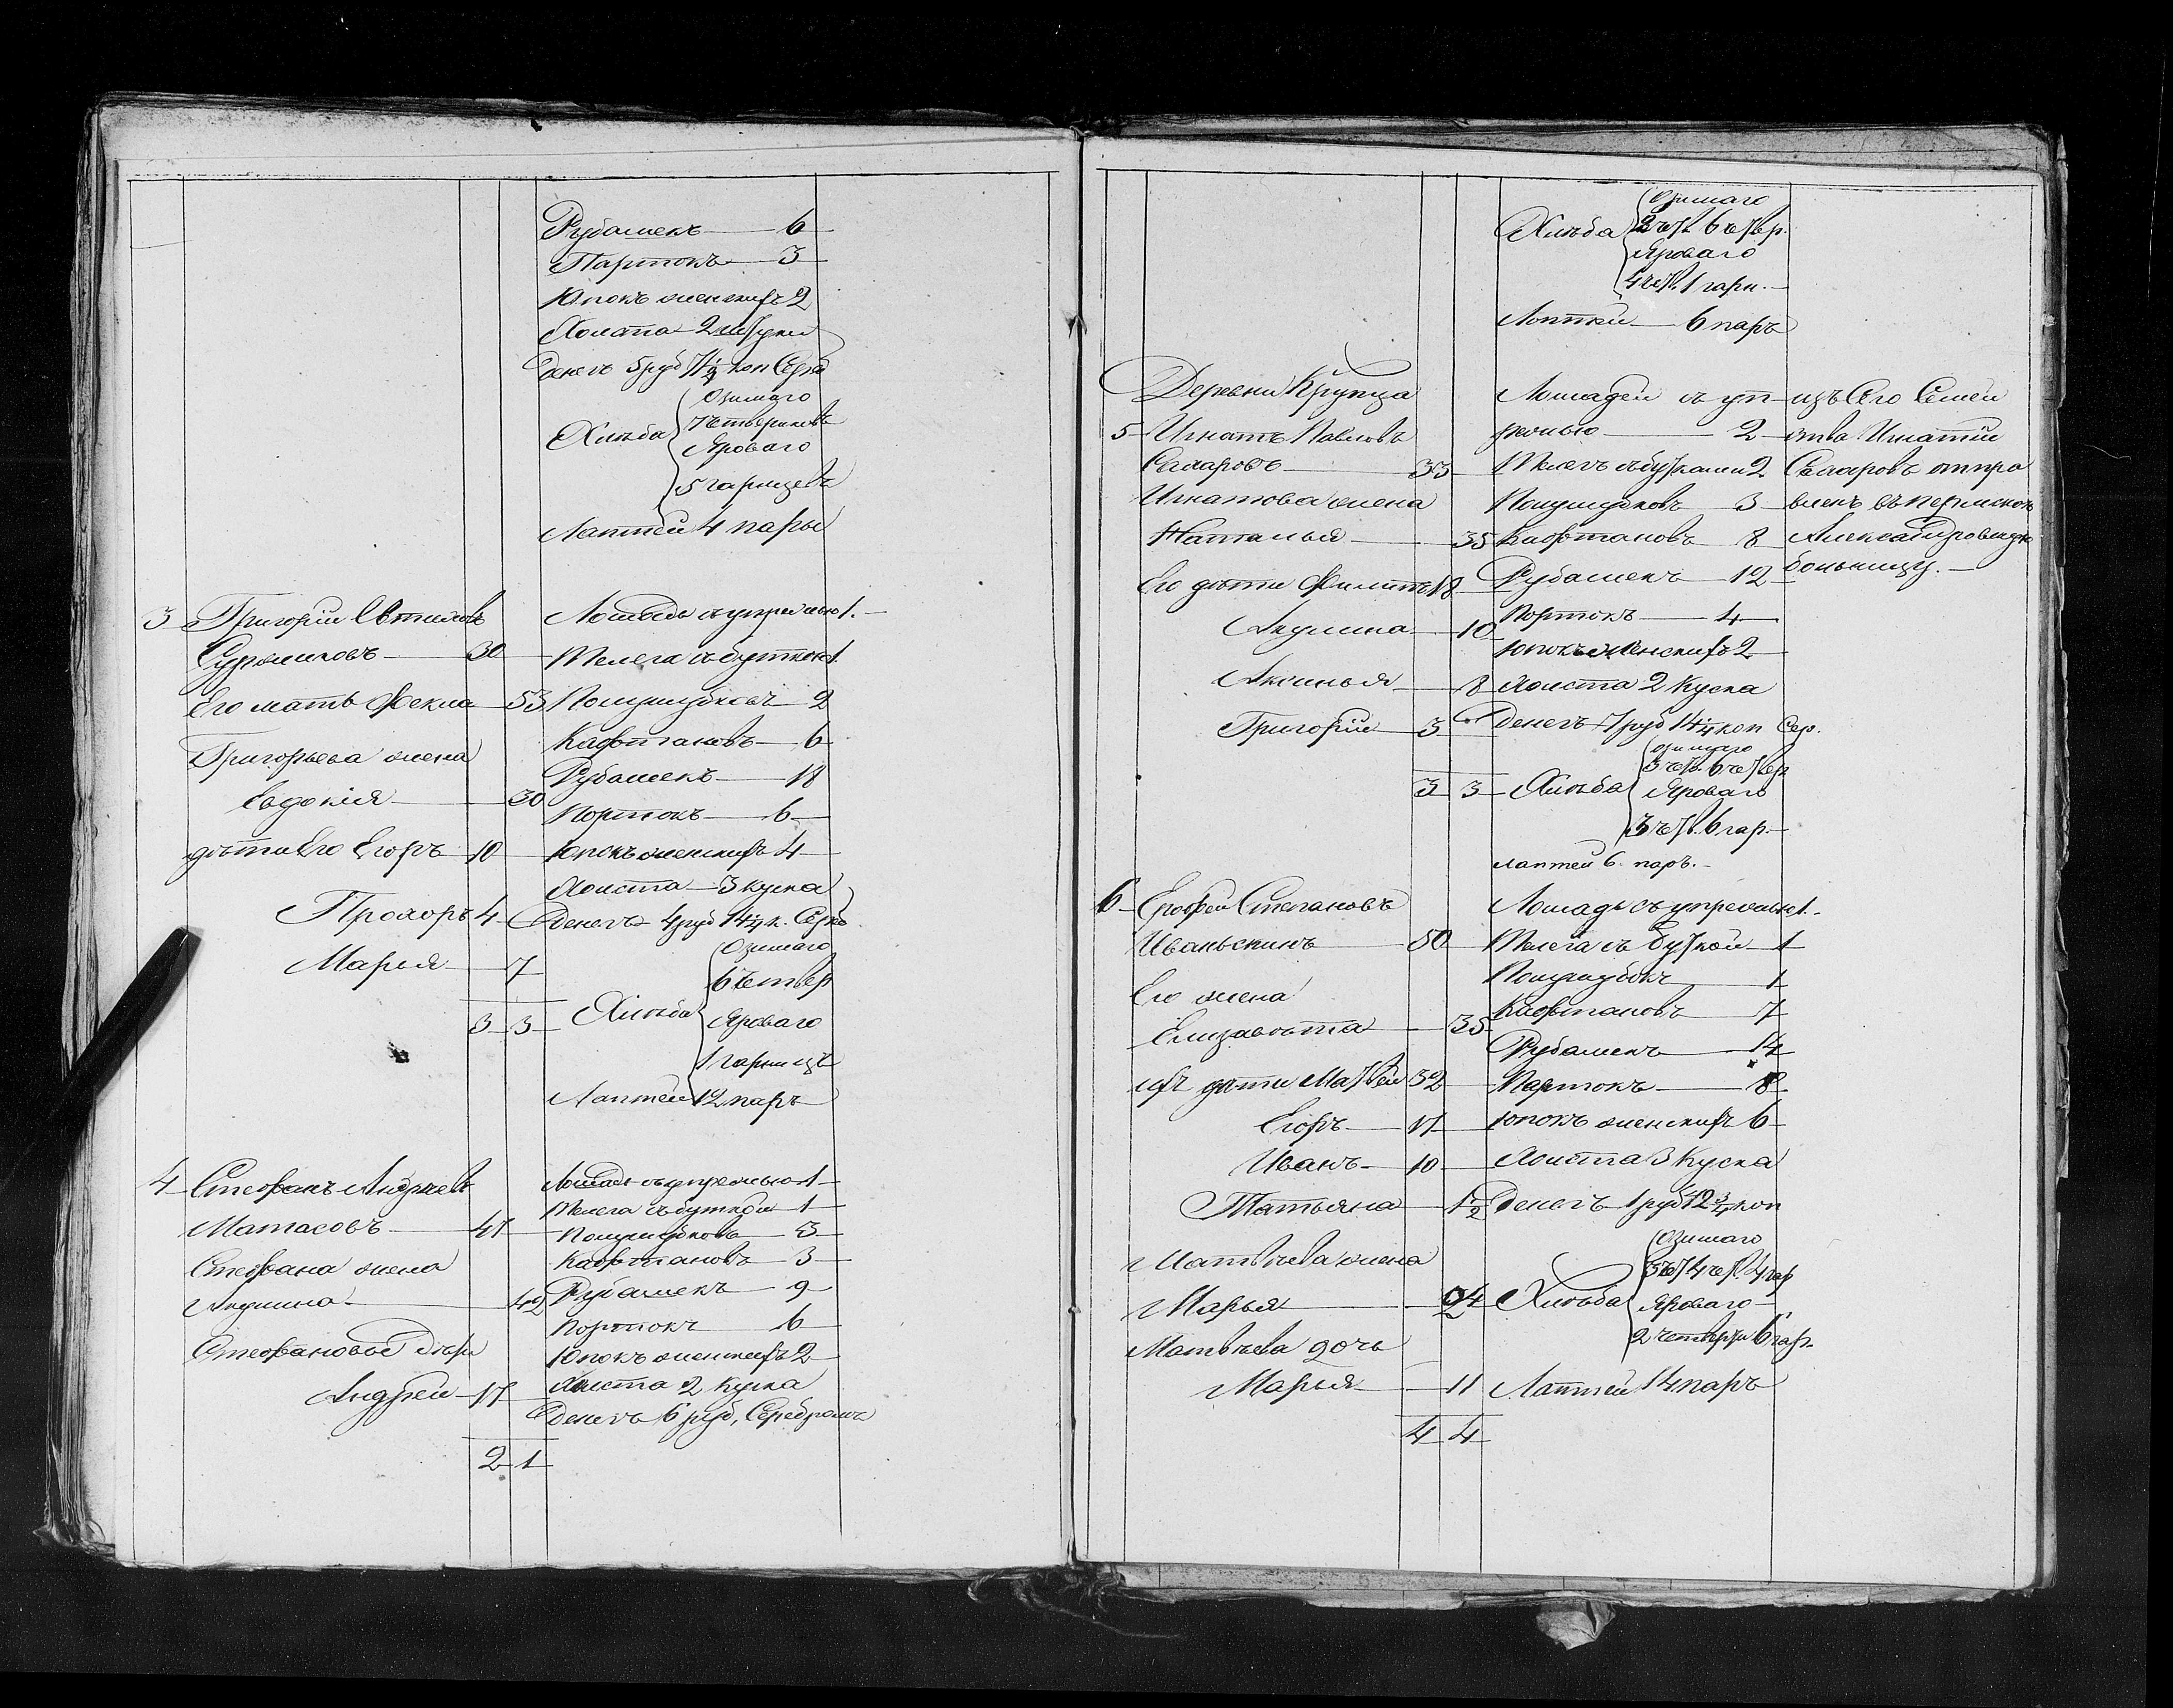 Рубашекъ 6
Партокъ 3
Юпокъ женскихъ 2
Холста 2 штуки
Денегъ 5 руб 71/2 коп Сереб
Озимаго
Хлѣба 7 четвериковъ
Яроваго
5 гарнцевъ
Лаптей 4 пары
3 Григорій Лошадь съ упряжью 1.
30 Телега съ буткою 1.
Его мать Фекла 53 Полушубковъ 2
Кафтановъ 6
Григорьева жена
Рубашекъ 18
Евдокія 30
Портокъ 6
дѣти Его Егоръ 10 Юпокъ женскихъ 4
Холста 3 куска
Прохоръ 4 Денегъ 4 руб 14 1/4 к. Сереб
Озимаго
Марья 7
6 четвер
3 3 Хлѣба Яроваго
1 гарнецъ
Лаптей 12 паръ
4 Стефанъ Андреевъ Лошадь съ упряжью 1
Телега съ буткой 1
Матасовъ 47 Полушубковъ 3
Стефана жена Кафтановъ 3
Акулина 42 Рубашекъ 9
Портокъ 6
Стефановы дѣти Юпокъ женскихъ 2
Андрей 17 Холста 2 куска
Денегъ 6 руб, Серебромъ
2 1
Озимаго
Хлѣба 2 четв 6 четвер.
Яроваго
4 четв. 1 гарн.
Лаптей 6 паръ
Деревни Крупца Лошадей съ уп изъ Его Семей
5 Игнатъ Павловъ ряжью 2 ства Игнатій
33 Телегъ съ бутками 2 отпра
Игнатова жена Полушубковъ 3 вленъ въ
Наталья 35 Кафтановъ 8 Александровскую
Его дѣти Филиппъ 18 Рубашекъ 12 больницу.
Портокъ 4
Акулина 10
Юпокъ женскихъ 2
Аксинья 8 Холста 2 куска
Григорій 3 Денегъ 7 руб 14 1/4 коп Сер.
Озимаго
3 четв. 6 четвер
3 3 Хлѣба Яроваго
3 четв. 6 гар.
лаптей 6 паръ.
6 Ерофей Степановъ Лошадь съ упряжью 1.
Иванъскинъ 50 Телега съ буткой 1
Полушубокъ 1
Его жена
Кафтановъ 7
Елизавѣта 35
Рубашекъ 14
ихъ дѣти Матвей 32 Портокъ 8
Егоръ 17 Юпокъ женскихъ 6
Иванъ 10 Холста 3 куска
Татьяна 1 1/2 Денегъ 1 руб 42 3/4 коп
Озимаго
Матвѣева жена 3 чет 4 чет. 4 гар
Марья 24 Хлѣба Яроваго
2 четверти 6 гар.
Матвѣева дочь
Марья 11 Лаптей 14 паръ
4 4